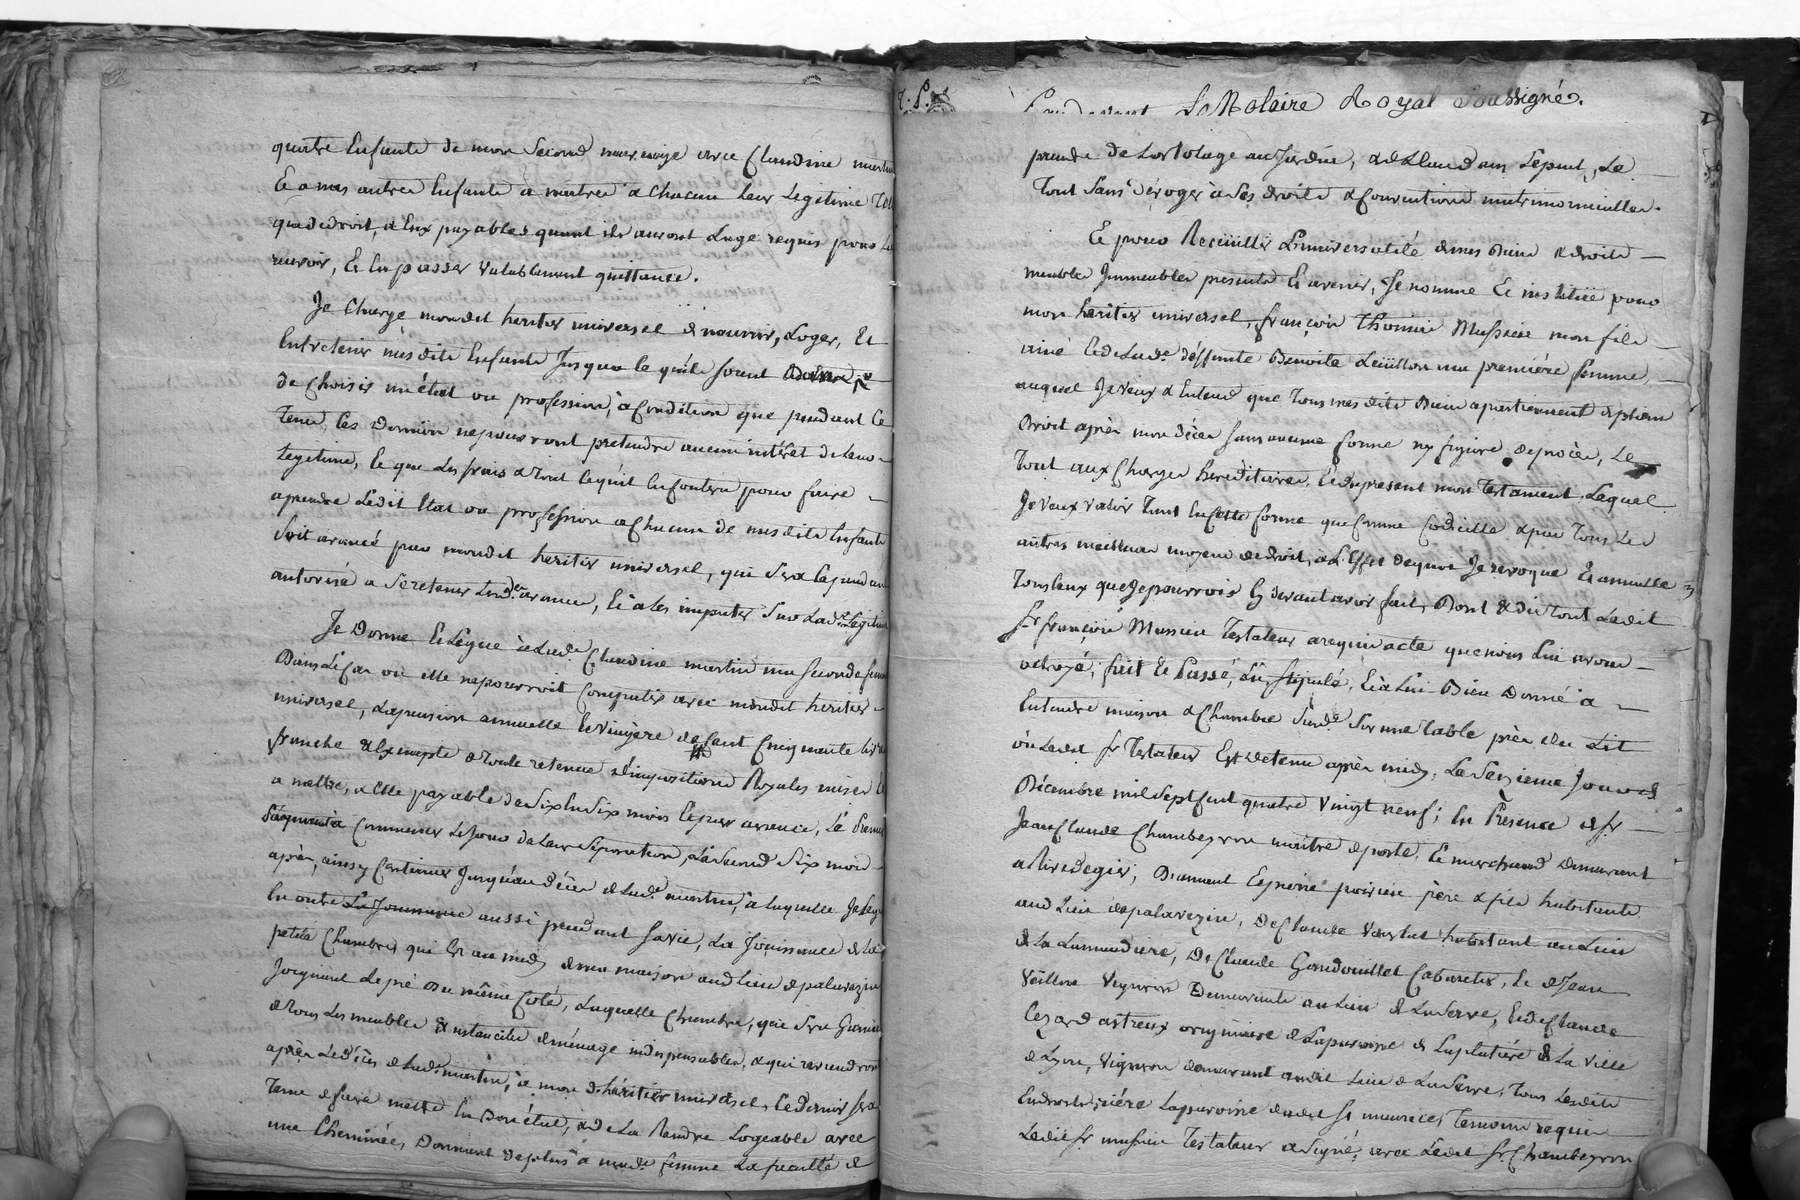 quatre Enfants de mon Second mariage avec Claudine martin
Et a mes autres Enfants a naitre a Chacun leur Legitime Tel
que de droit, a Eux payables quant ils auront L'age requis pour La
recevoir, Et En passer valablement quittance.
Je Charge mondit heritier universel de nourrir, Loger, Et
Entretenir mesdits Enfants Jusqua ce quils soient
de Choisir un état ou profession, a Condition que pendant Ce
Tems Ces Derniers ne pourront pretendre aucun intérêt de leur
Legitime, Et que Les frais & Tout ce qu'il En Coutera pour faire
aprendre Ledit Etat ou profession a Chacun de mesdits Enfants
Soit avancé par mondit heritier universel, qui Sera Cependant
autorisé a Se retenir Lesd. avances, Et à les imputer Sur Lad. Legitime
Je Donne Et Legue à Lad.e Claudine martin ma Seconde femme
Dans Le Cas ou elle ne pourroit Compatir avec mondit heritier
universel, La pension annuelle Et viagère de Cent Cinquante livres
franche & Exempte de toute retenue d'impositions Royales mises Et
a mettre, a Elle payable de Six En Six mois Et par avance, Le Premier
Payement a Commencer Le Jour de Leur Séparation, Le Second Six mois
après, ainsy Continuer Jusqu'au décès de Lad.e martin, à laquelle Je Legue
En outre La Jouissance aussi pendant Sa vie, La Joüissance de La
petite Chambre, qui Est au midy de ma maison aud Lieu de palavezin
Joignant Le pré Du même Coté, Laquelle Chambre, qui Sera Garnie
de Tous Les meubles & ustanciles de ménage indispensables, & qui reviendront
après Le décès de Lad.e martin, à mon d. héritier universel, Ce dernier Sera
Tenu de faire mettre En Bon état, & de La Rendre Logeable avec
une Cheminée, Donnant de plus a mad.e femme La faculté de
T. P.
Le Notaire Royal Soussigné.
prendre de L'ortolage au Jardin, & de L'eau dans Le puit, Le
Tout Sans déroger à Ses droits & Conventions matrimonialles.
Et pour Receüillir L'universalité de mes Biens & droits
meubles Immeubles presents Et avenir, Je nomme Et institüe pour
mon héritier universel, françois Thomie Mussieu mon fils
ainé Et de Lad.e déffunte Benoite ma première femme,
auquel Je veux & Entend que Tous mesdits Biens apartiennent de plein
Droit après mon décès Sans aucune forme ny figure de procès, Le
Tout aux Charges héréditaires, Et du present mon Testament, Lequel
Je veux valoir Tant En Cette forme que Comme Codicille & par Tous Les
autres meilleurs moyens de droit, a L'Effet de quoi Je revoque Et annulle
Tous Ceux que Je pourrois Cy devant avoir faits, Dont & du Tout Ledit
Sr françois Mussieu Testateur a requis acte que nous Lui avons
octroyé; fait Et Passé, Lû, Stipulé, Et à Lui Bien Donné à
Entendre maison & Chambre Susd.e Sur une Table près du Lit
ou Ledit Sr Testateur Est detenu après midy, Le Seizieme Jour de
Décembre mil Sept Cent quatre vingt neuf; En Présence de Sr
Jean Claude Chambeyron maitre de poste, Et marchand demeurant
a Rivedegier, Diament Espeine père & fils habitants
aud Lieu de palavezin, De Claude habitant au Lieu
de La Lamandiere, De Claude Gondouillet Cabaretier, Et de Jean
Veillon Vigneron Demeurants au Lieu de La Serve, Et de Claude
Cezard astreux originaire de La paroisse de La platiére de La Ville
de Lyon, Vigneron demeurant audit Lieu de La Serve, Tous Lesdits
Endroits, riére La paroisse dudit St maurice, Temoins requis
Ledit Sr mussieu Testateur a Signé, avec Ledit Sr Chambeyron